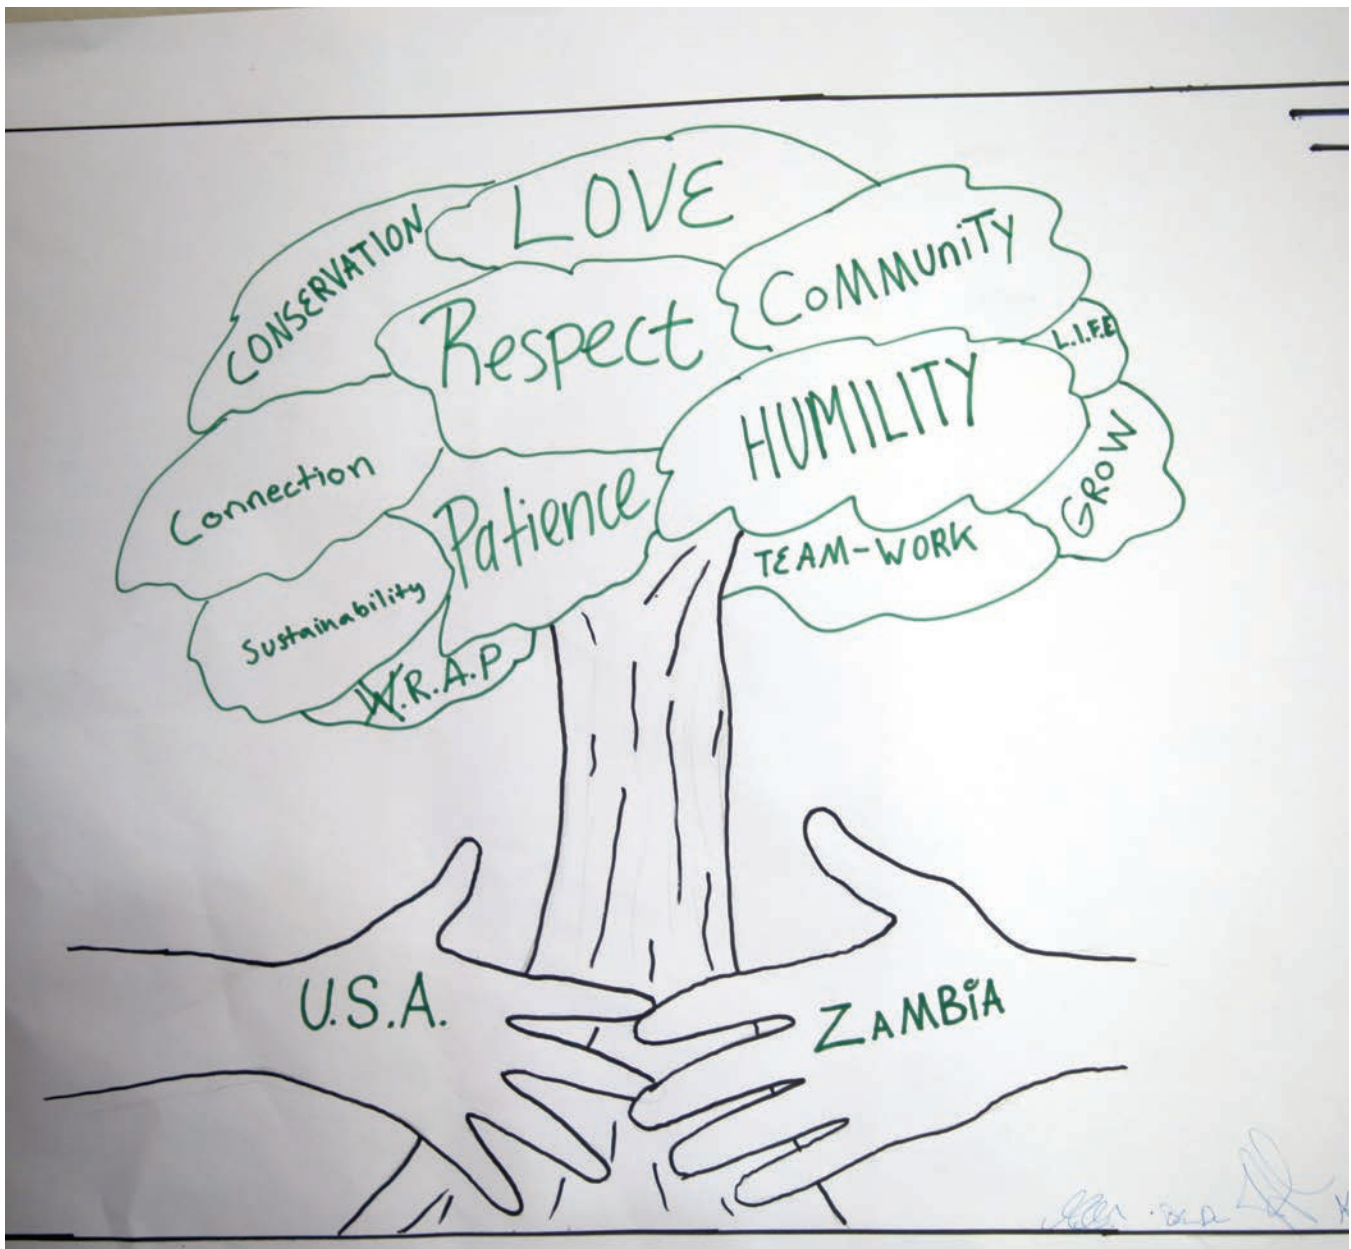 LOVE
CONSERVATION
CoMMUniTY
Respect
L.I.F.E
HUMILITY
GROW
Connection
Patience
TEAM-WORK
Sustainability
W.R.A.P
U.S.A.
ZAMBiA